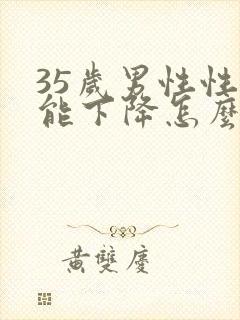 35歲男性性
能下降怎麼
黃雙慶